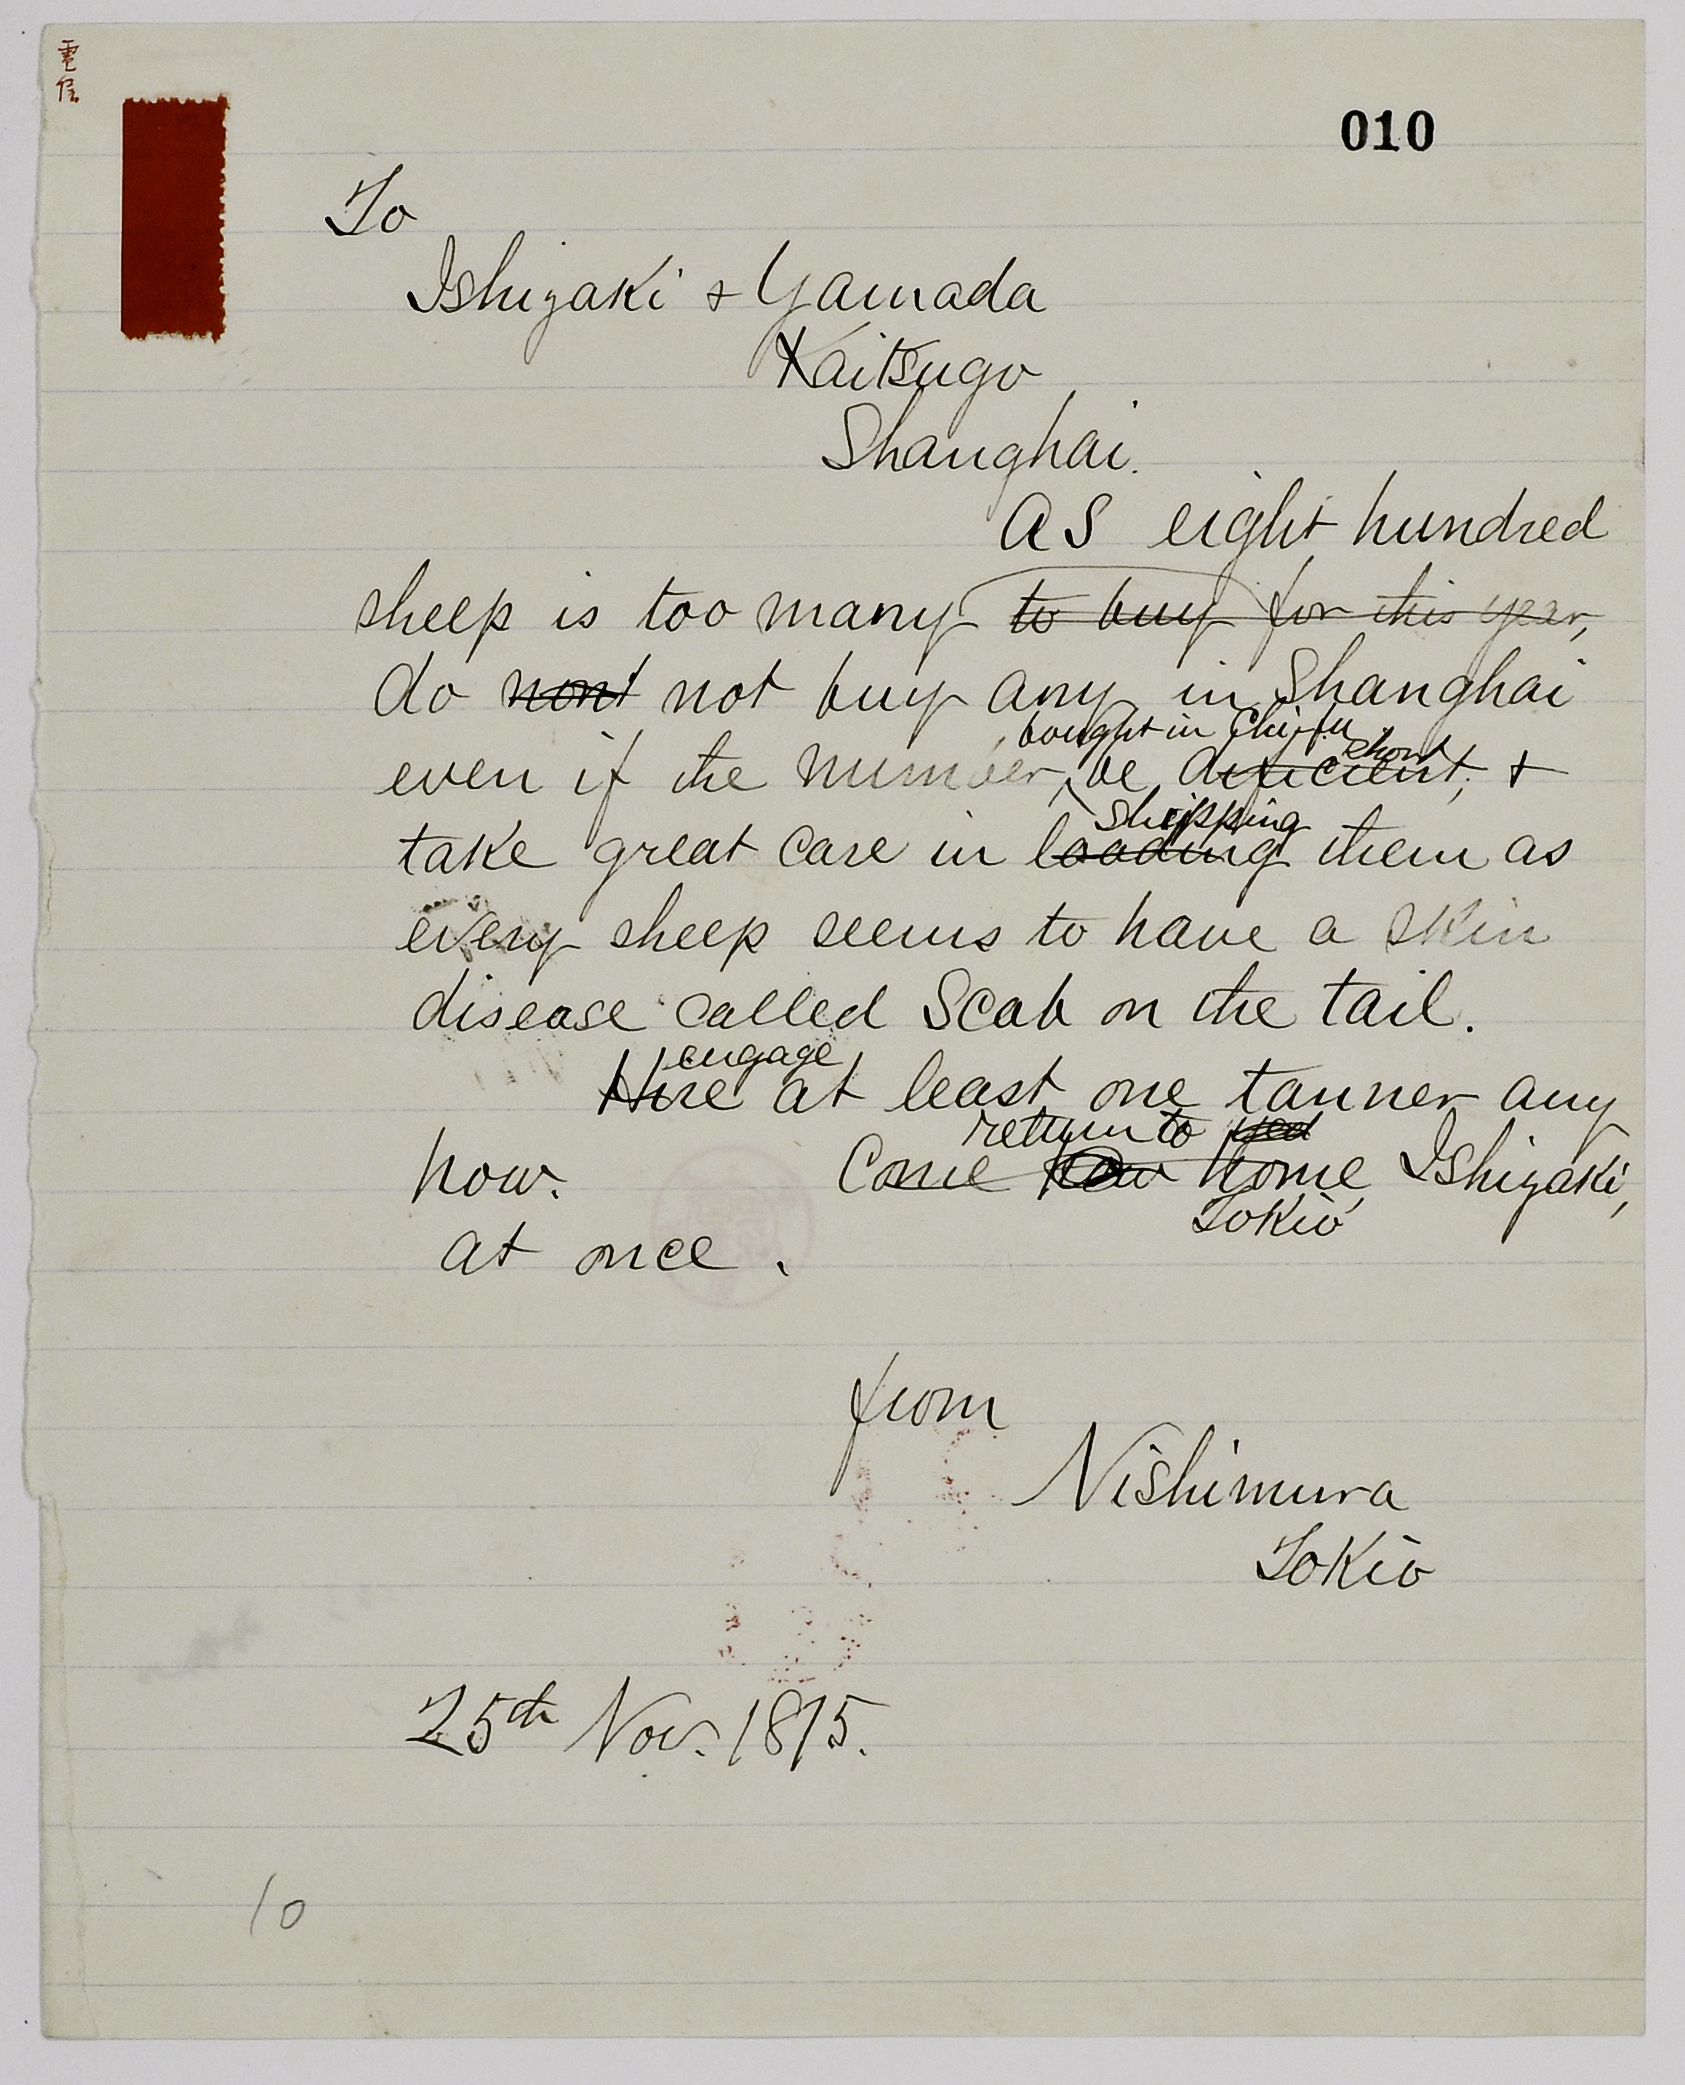 電信
010
To
Ishizaki & Yamada
Kaitsugo
Shanghai.
As eight hundred
sheep is too many to buy for this year,
do nont not buy any in Shanghai
bought in Chi-fu short
even if the number, be deficient, &
shipping
take great care in loading them as
every sheep seems to have a skin
disease called Scab on the tail.
engage
Hire at least one tanner any
return to
how. Come home Ishizaki,
Tokio
at once.
from
Nishimura
Tokio
25th Nov. 1875.
10